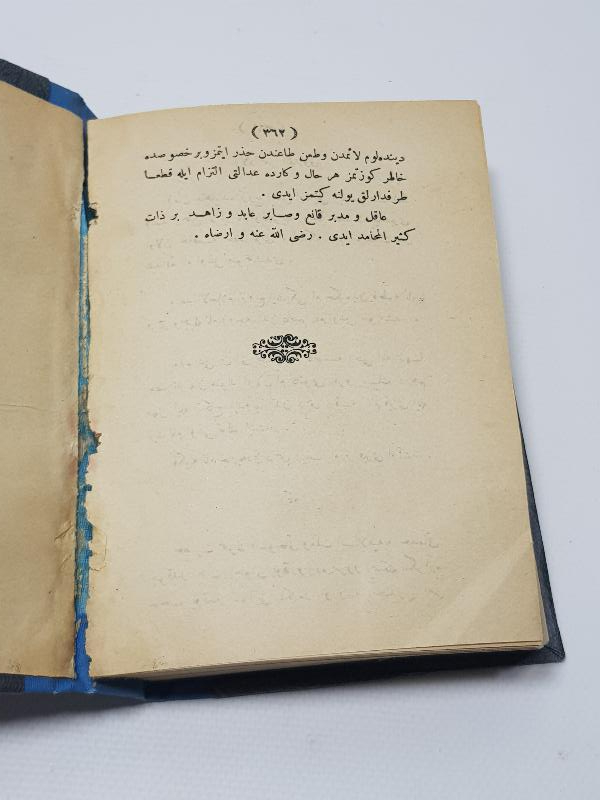 ( ٣٦٢ )
دیننده لوم لائمدن وطعن طاعندن حذر ایتمز وبر خصوصده
خاطر كوزتمز هر حال وكارده عدالتی التزام ایله قطعا
طرفدارلق یولنه كیتمز ایدی .
عاقل و مدبر قانع وصابر عابد و زاهد بر ذات
كثیر المحامد ایدی . رضی الله عنه و ارضاه .